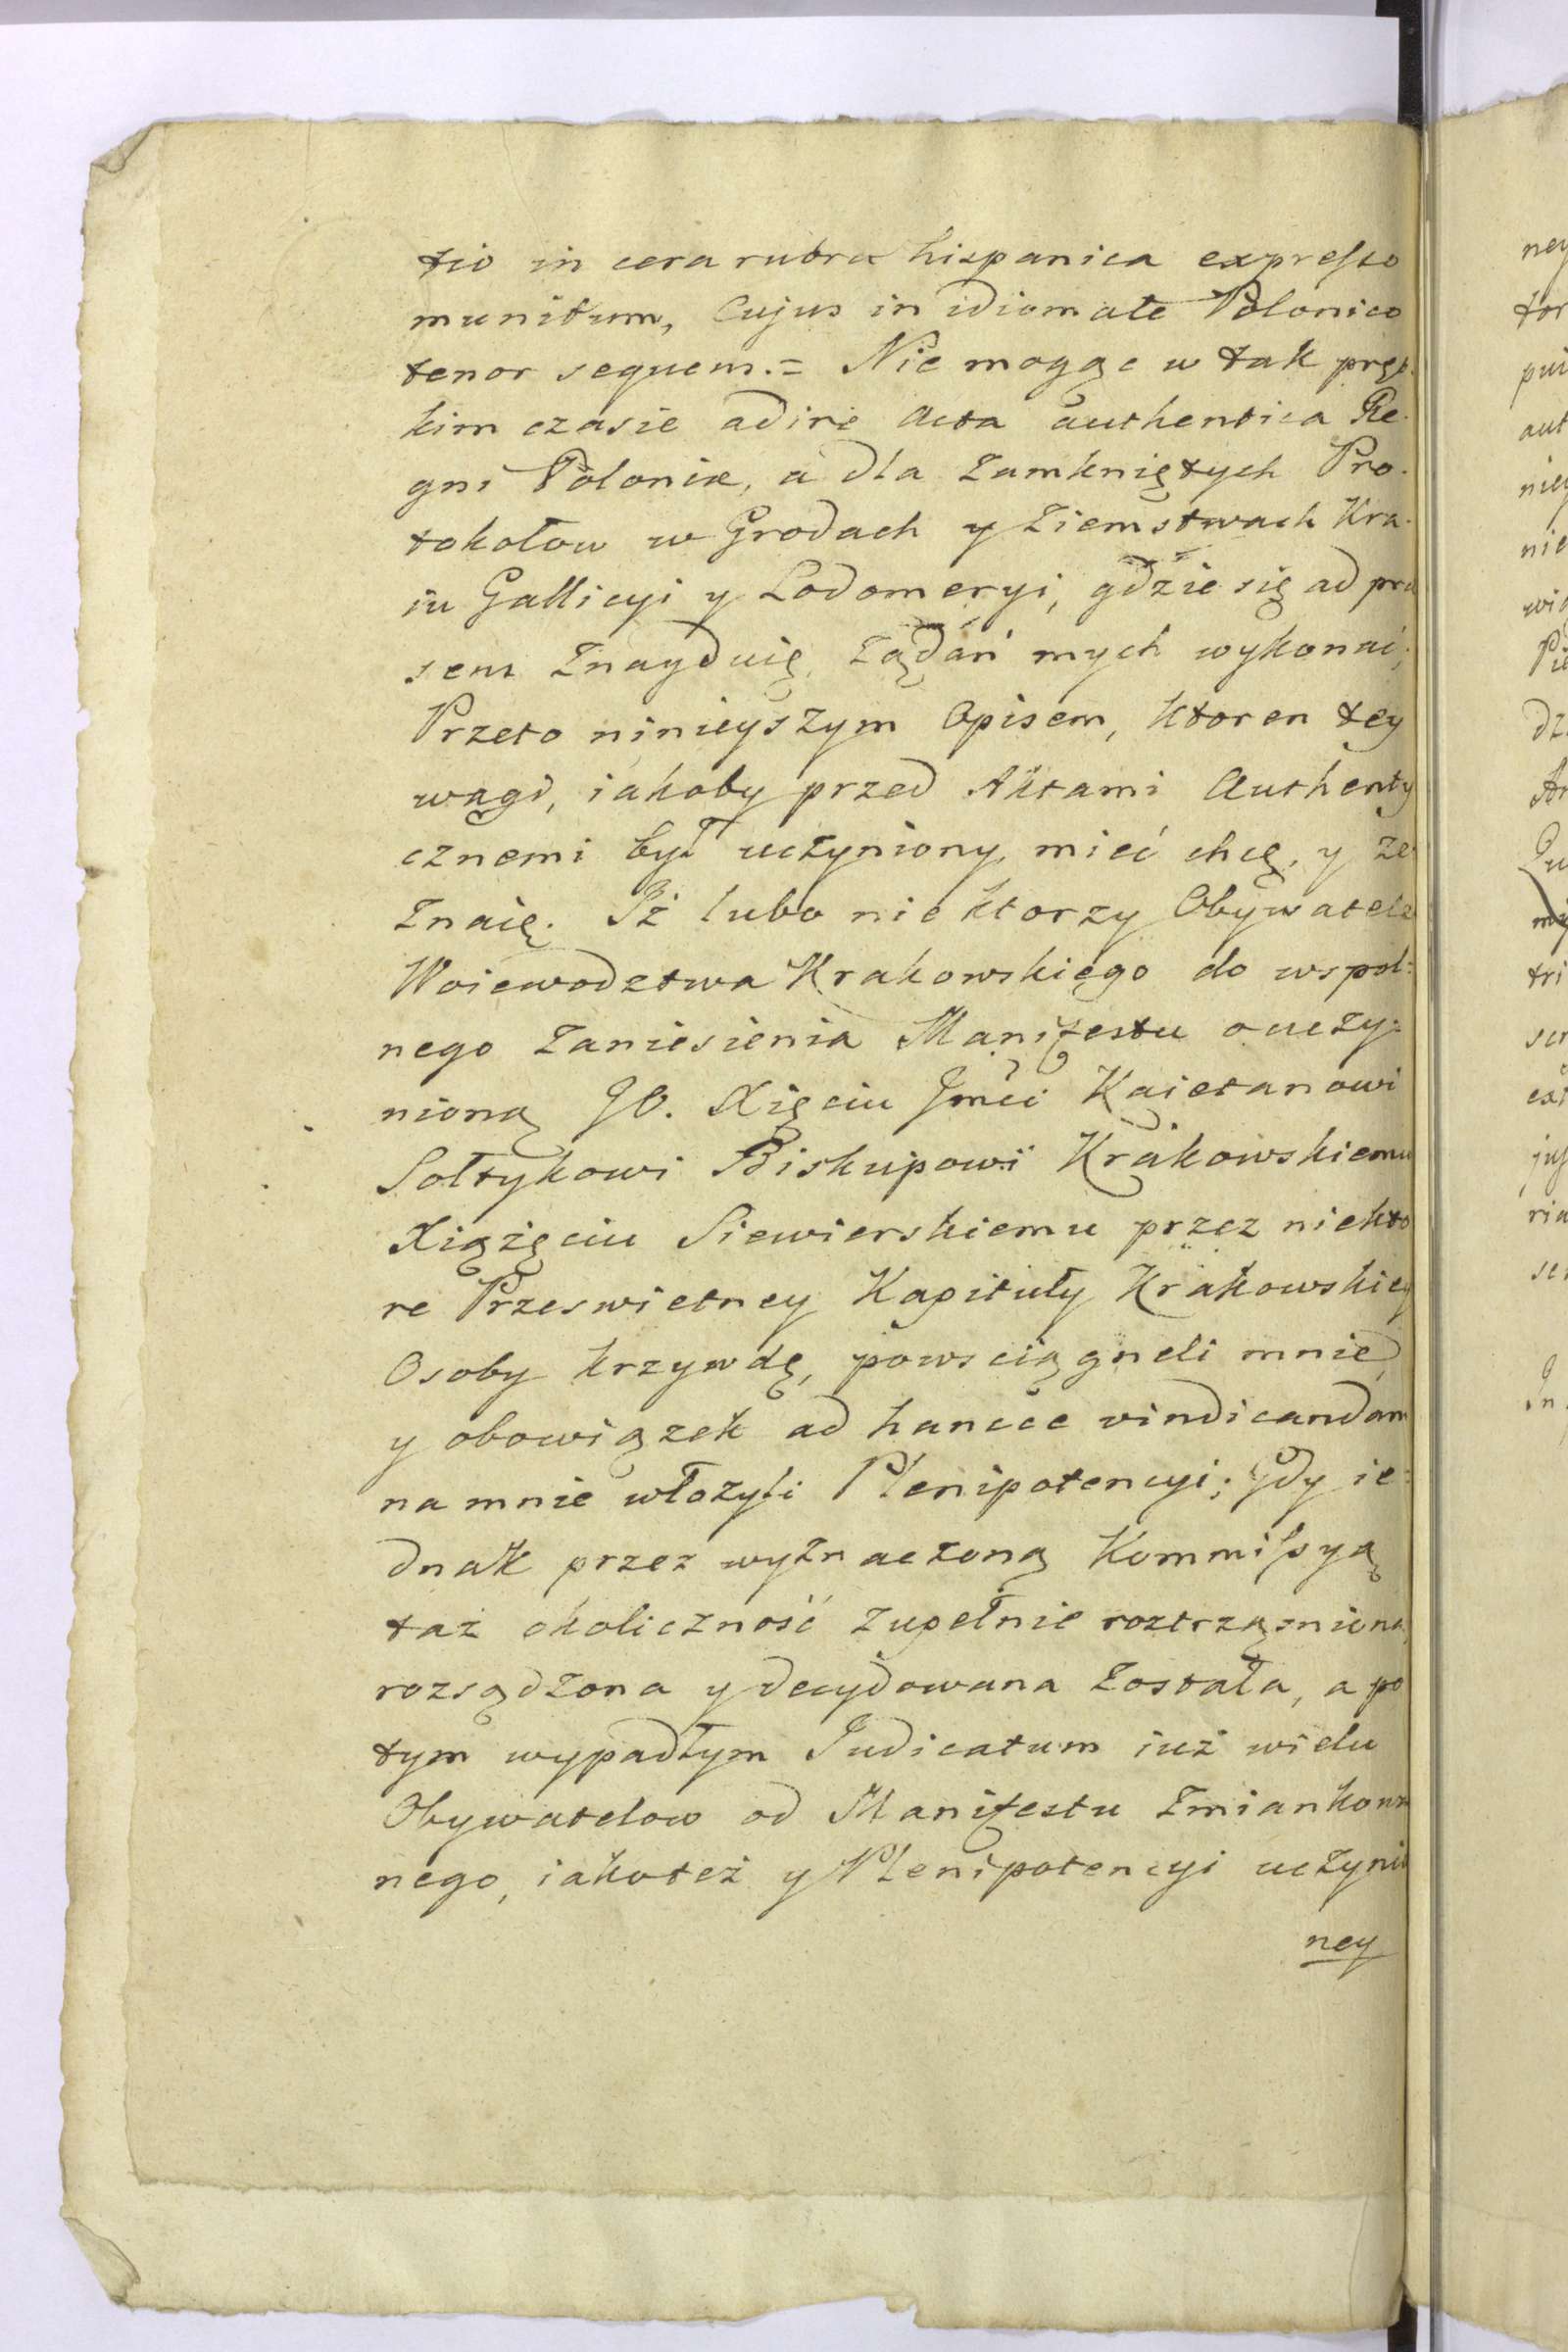 tio in cera rubra hispanica expresso
munitum, Cujus in idiomate Polonico
tenor sequens. = Nie mogąc w tak pręt-
kim czasie adire Acta authentica Re-
gni Poloniæ, a dla zamkniętych Pro-
tokołow w Grodach y Ziemstwach Kra-
iu Gallicyi y Lodomeryi, gdzie się ad præ
sens znayduię, żądań mych wykonać;
Przeto ninieyszym Opisem, ktoren tey
wagi, iakoby przed Aktami Authenty
cznemi był uczyniony, mieć chcę, y ze
znaię. Iż lubo niektorzy Obywatele
Woiewodztwa Krakowskiego do wspol:
nego zaniesienia Manifestu o uczy:
nioną JO. Xięciu Jmci Kaietanowi
Sołtykowi Biskupowi Krakowskiemu
Xiążęciu Siewierskiemu przez niekto
re Przeswietney Kapituły Krakowskiey
Osoby krzywdę, powsciągneli mnie,
y obowiązek ad hancce vindicandam
na mnie włożyli Plenipotencyi; Gdy ie:
dnak przez wyznaczoną Kommissyą
taż okoliczność zupełnie roztrząsniona,
rozsądzona y decydowana została, a po
tym wypadłym Judicatum iuż wielu
Obywatelow od Manifestu zmiankowa
nego, iakoteż y Plenipotencyi uczynio
ney